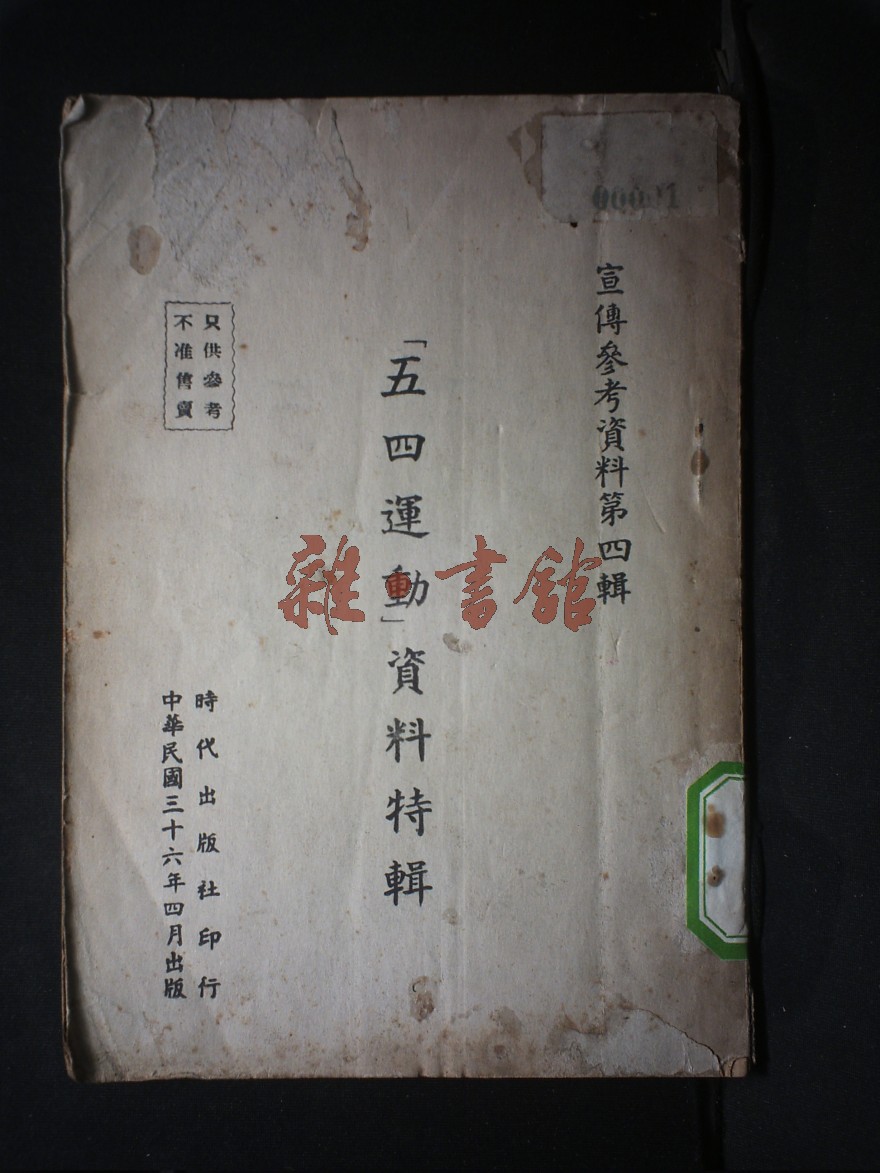 宣傳參考資料第四輯
「五四運動」資料特輯
只供參考
不准售賣
時代出版社印行
中華民國三十六年四月出版
雜·書館